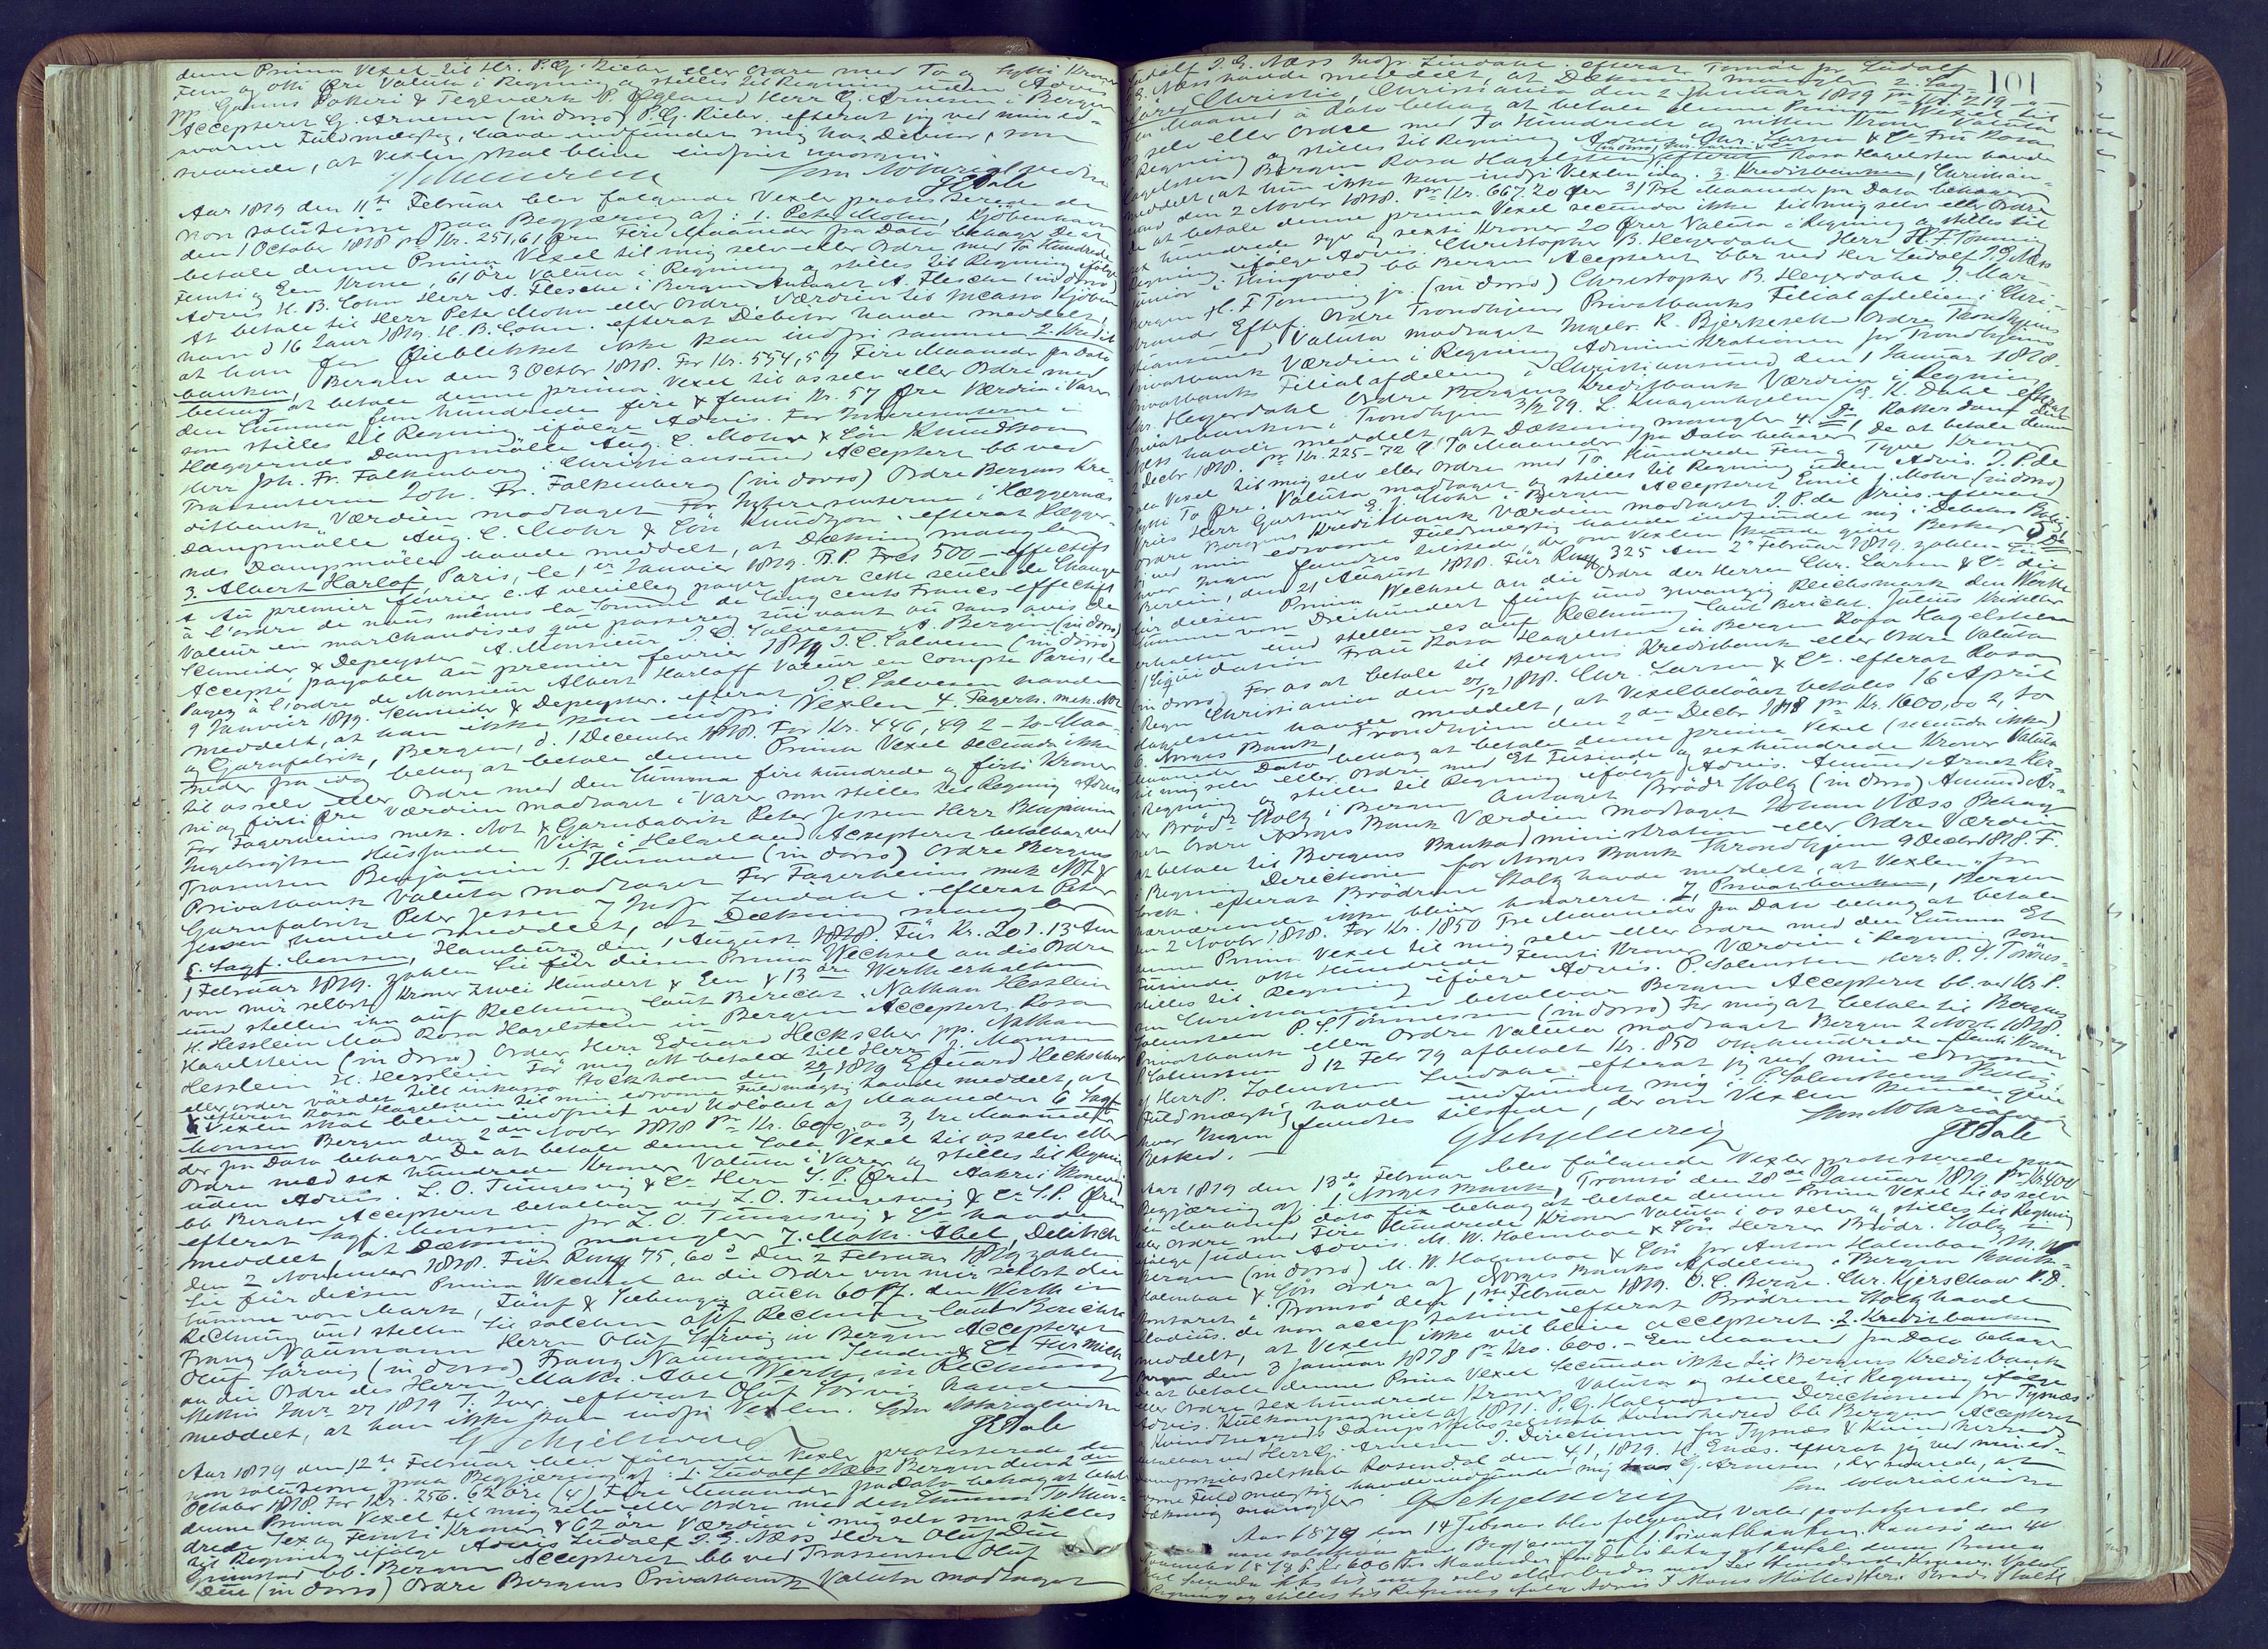 denne Prima Vexel til Hr. P. G. Rieber eller Ordre med To og Sytti Kroner
Fem og otti Øre Valuta i Regning og stilles til Regning uden Advis
pr Grams Potteri & Teglværk P. Øgland Herr G. Arnesen i Bergen
Accepteret G. Arnesen (in dorso) P. G. Rieber. efterat jeg ved min ed-
svorne Fuldmægtig, havde indfundet mig hos Debitor, som
svarede, at Vexlen skal blive indfriet imorgen.
Som Notarialvidne
JGDale
Aar 1879 den 11te Februar blev følgende Vexler protesterede de
non solutione paa Begjæring af: 1. Peter Mohn, Kjöbenhavn
den 1 October 1878 pr Kr. 251,61 Øre Fire Maaneder fra Dato behager De at
betale denne Prima Vexel til mig selv eller Ordre med To Hundrede
Femti og Een Krone, 61 Øre Valuta i Regning og stilles til Regning ifølge
Advis H. B. Cohn Herr A. Flesche i Bergen Antaget A. Flesche (in dorso)
At betale til Herr Peter Mohn eller Ordre, Værdien til Incasso Kjöben-
havn d 16 Janr 1879. H. B. Cohn. efterat Debitor havde meddelt,
at han for Øieblikket ikke kan indfri samme 2. Kredit
banken, Bergen den 3 Octbr 1878. For Kr. 554,57 Fire Maaneder fra Dato
behag at betale denne prima Vexel til os selv eller Ordre med
den Summa fem hundrede fire & femti Kr. 57 Øre Værdien i Varer
som stilles til Regning ifølge Advis. For Interessenterne i
Hæggernæs Dampmölle Aug. C. Mohr & Sön Knudtzon
Herr Joh. Fr. Falkenberg. Christiansund Accepteret bb ved
Trassenterne Joh. Fr. Falkenberg (in dorso) Ordre Bergens Kre-
ditbank Værdien modtaget For Interessenterne i Hæggernæs
Dampmölle Aug. C. Mohr & Sön Knudtzon. efterat Hægger-
næs Dampmölle havde meddelt, at Dækning mangler
3. Albert Harlof, Paris, le 1er Janvier 1879. B.P. Frcs 500 - effectifs
A Au premier février c. A veuillez payer par cette seule de Change
à l'ordre de nous mêmes la Somme de Cinq cents Francs effectifs
Valeur en marchandises que passerez suivant ou sans avis de
Schneider & Depeyster A. Monsieur J. C. Salvesen A. Bergen (in dorso)
Accepté payable au premier fevrier 1879 J. C. Salvesen (in dorso)
Payez à l'ordre de Monsieur Albert Harloff Valeur en compte Paris, le
9 Janvier 1879. Schneider & Depeyster. efterat J. C. Salvesen havde
meddelt, at han ikke kan indfri Vexlen 4. Fagerh. mek. Not
og Garnfabrik, Bergen, d. 1 December 1878. For Kr. 446,49 2 - to Maa-
neder fra idag behag at betale denne Prima Vexel secunda ikke
til os selv eller Ordre med den Summa fire hundrede og firti Kroner
ni og firti Øre Værdien modtaget i Varer som stilles til Regning Advis
For Fagerheims mek. Not & Garnfabrik Peter Jessen Herr Benjamin
Ingebrigtsen Husfjande Viik i Helgeland Accepteret betalbar ved
Trasenten Benjamin T. Husande (in dorso) Ordre Bergens
Privatbank Valuta modtaget For Fagerheims mek Not &
Garnfabrik Peter Jessen J Indfr Lindahl. efterat Peter
Jessen havde meddelt, at Dækning mangler
5. Sagf. Monsen, Hamburg den 1 August 1878 Für Kr. 201. 13 Am
1 Februar 1879. zahlen Sie für diesen Prima Wechsel an die Ordre
von mir selbst Kroner Zwei Hundert & Een & 13 öre Werth erhalten
und stellen ihn auf Rechnung laut Bericht. Nathan Hesslein
H. Hesslein Mad Rosa Hagelsteen in Bergen Accepteret Rosa
Hagelstein (in dorso) Order Herr Eduard Heckscher pp. Nathan
Hesslein H. Hesslein För mig att betala till Herr J. Monsen
eller order värdet till inkasso Stockholm den 22/1 1879 Eduard Heckscher
efterat Rosa Hagelstein til min edsvorne Fuldmægtig havde meddelt, at
Vexlen skal blive indfriet ved Udløbet af Maaneden 6 Sagf
Monsen Bergen den 2den Novbr 1878 Pr Kr. 600,00 3, tre Maane-
der fra Dato behager De at betale denne Sola Vexel til os selv eller
Ordre med sex hundrede Kroner Valuta i Varer og stilles til Regning
uden Advis. L. O. Tungesvig & Co Herr S. P. Ören Aakre i Mosevig
bb Bergen Accepteret betalbar ved L. O. Tungesvig & Co S. P. Ören
efterat Sagf. Monsen for L. O. Tungesvig & Co havde
meddelt, at Dækning mangler 7. Math. Abel, Delitsch
den 2 November 1878. Für Rmk 75,60 d Den 2 Februar 1879 zahlen
Sie für diesen Prima Wechsel an die Ordre von mir selbst die
Summe von Mark, Fünf & Siebenzig auch 60 Pf. den Werth in
Rechnung und stellen sie solchen auf Rechnung laut Bericht
Franz Naumann Herrn Oluf Sörvig in Bergen Accepteret
Oluf Sörvig (in dorso) Franz Naumann Senden & Co Für mich
an die Ordre des Herrn Math. Abel Werth in Rechnung
Mettin Janr 27 1879 T. Iver. efterat Oluf Sörvig havde
meddelt, at han ikke kan indfri Vexlen. Som Notarialvidne
JGDale
Aar 1879 den 12te Februar blev følgende Vexler protesterede de
non solutione paa Begjæring af: 1. Ludolf Næss Bergen den 2den
October 1878 For Kr. 256. 62 Öre (4) Fire Maaneder fra Dato behag at betale
denne Prima Vexel til mig selv eller Ordre med den Summa To Hun-
drede Sex og Femti Kroner & 62 öre Værdien i mig selv som stilles
til Regning ifølge Advis Ludolf J. G. Næss Herr Oluf Due
Grimstad bb. Bergen Accepteret bb ved Trassenten Oluf
Due (in dorso) Ordre Bergens Privatbank Valuta modtaget
101
Ludolf J. G. Næss Indfr Lindahl. efterat Tomöe for Ludolf
J. G. Næss havde meddelt, at Dækning mangler 2. Sag-
förer Christie, Christiania den 2 Januar 1879 pr Kr. 219 -
En Maaned a Dato behag at betale denne Prima Vexel til
os selv eller Ordre med To Hundrede og nitten Kroner Valuta
i Regning og stilles til Regning Advis Chr. Larsen & Co Frü Rosa
Hagelsteen Bergen Rosa Hagelsteen (in dorso) Chr. Larsen & Co efterat Rosa Hagelsten havde
meddelt, at hun ikke kan indfri Vexlen idag. 3. Kreditbanken, Christian-
sund den 2 Novbr 1878. pr Kr. 667.20 Øre 3/Tre Maaneder fra Dato behager
De at betale denne prima Vexel secunda ikke til mig selv eller Ordre
sex hundrede syv og sexti Kroner 20 Ører Valuta i Regning og stilles til
Regning ifølge Advis. Christopher B. Heyerdahl Herr H. F. Tönning
junior i Thingvold bb Bergen Accepteret bbr ved Hr Ludolf J. G. Næss
Bergen H. F Tönning jr. (in dorso) Christopher B. Heyerdahl J Mar-
strands Eftf. Ordre Trondhjems Privatbanks Filialafdeling i Chri-
stiansund Valuta modtaget Ingebr. K. Bjerkeseth Ordre Trondhjems
Privatbank Værdien i Regning Administrationen for Trondhjems
Privatbanks Filialafdeling i Christiansund den 1 Januar 1878.
Chr. Heyerdahl Ordre Bergens Kreditbank Værdien i Regning
Privatbanken i Trondhjem 3/2 79. L. Knagenhjelm /G. K. Dahl efterat
Næss havde meddelt, at Dækning mangler 4. Do, Rotterdam den
2 Decbr 1878. pr Kr. 225-72 Ø To Maaneder fra Dato behager De at betale denne
Sola Vexel til mig selv eller Ordre med To Hundrede Fem og Tyve Kroner
Sytti To Øre. Valuta modtaget og stilles til Regning uden Advis. J. P. de
Vries Herr Gartner E. J. Mohr i Bergen Accepteret Emil J. Mohr (in dorso)
Ordre Bergens Kreditbank Værdien modtaget J. P. de Vries. efterat
jeg ved min edsvorne Fuldmægtig havde indfundet mig i Debitors Bolig,
hvor Ingen fandtes tilstede, der om Vexlen kunde give Besked 5 Do
Berlin, den 21 August 1878. Für Rmk 325 Am 2 Februar 1879. zahlen Sie
für diesen Prima Wechsel an die Ordre der Herren Chr. Larsen & Co die
Summe vom Dreihundert fünf und zwanzig Reichsmark den Werth
erhalten und stellen es auf Rechnung laut Bericht. Julius Kreideller
/Liquidation Frau Rosa Hagelsten in Bergen Rosa Hagelsteen
(in dorso) For os at betale til Bergens Kreditbank eller Ordre Valuta
i Regn Christiania den 27/12 1878. Chr. Larsen & Co. efterat Rosa
Hagelsten havde meddelt, at Vexelbeløbet betales 16 April
6. Norges Bank, Trondhjem den 2den Decbr 1878 pr Kr. 1600,00 2, to
maaneder Dato behag at betale denne prima Vexel (secunda ikke)
til mig selv eller Ordre med Et Tusinde og sexhundrede Kroner Valuta
i Regning og stilles til Regning ifølge Advis. Amund Arnet Her-
rer Brödr Stoltz i Bergen Antaget Brödr Stoltz (in dorso) Amund Ar-
net. Ordre Norges Bank Værdien modtaget Johan Næss Behag
at betale til Bergens Bankadministration eller Ordre Værdien
i Regning Directionen for Norges Bank Throndhjem 9 Decbr 1878. F.
Lorck. efterat Brödrene Stoltz havde meddelt, at Vexlen "for
nærværende ikke bliver honoreret. 7, Privatbanken, Bergen
den 2 Novbr 1878. For Kr. 1850 Tre Maaneder fra Dato behag at betale
denne Prima Vexel til mig selv eller Ordre med den Summa Et
Tusinde otte Hundrede Femti Kroner Værdien i Regning som
stilles til Regning ifølge Advis. P. Solemsteen Herr P. S. Tönnes-
sen Christiansund betalbar Bergen Accepteret bb. ved Hr. P.
Solemsteen P. S. Tönnessen (in dorso) For mig at betale til Bergens
Privatbank eller Ordre Valuta modtaget Bergen 2 Novbr 1878.
P. Solemsteen d 12 Febr 79 afbetalt Kr. 850 ottehundrede femti Kroner
af Herr P. Solemsteen Lindahl efterat jeg ved min edsvorne
Fuldmægtig havde indfundet mig i P. Solemsteens Bolig,
hvor Ingen fandtes tilstede, der om Vexlen kunde give
Besked. - Som Notarialvidne
JGDale
Aar 1879 den 13de Februar blev følgende Vexler protesterede paa
Begjæring af 1. Norges Bank, Tromsö den 28de Januar 1879. Pr Kr. 400
En Maaned dato fix behag at betale denne Prima Vexel til os selv
eller Ordre med Fire Hundrede Kroner Valuta i os selv og stilles til Regning
ifølge/uden Advis. M. W. Holmboe & Sön Herrer Brödr. Stoltz i
Bergen (in dorso) M. W. Holmboe & Sön for Anton Holmboe J. M. W.
Holmboe & Sön Ordre af Norges Banks Afdeling i Bergen Bank-
kontoret i Tromsö den 1ste Februar 1879. O. C. Berge. Chr. Kjerschow P. D.
Cladius. de non acceptatione efterat Brödrene Stoltz havde
meddelt, at Vexlen ikke vil blive accepteret. 2. Kreditbanken
Bergen den 3 Januar 1878 pr Kro. 600. - Een Maaned fra Dato behager
De at betale denne Prima Vexel Secunda ikke til Bergens Kreditbank
eller Ordre Sexhundrede Kroner Valuta og stilles til Regning ifølge
Advis. Kulkompagniet af 1871. P. G. Halvorsen Directionen for Tysnæs
& Kvindherreds Dampskibsselskab Kvindherred bb Bergen Accepteret
betalbar ved Herr G. Arnesen I. Directionen for Tysnæs & Kvindherreds
Dampskibsselskab Rosendal den 4/1, 1879. H. Enæs. efterat jeg ved min ed-
svorne Fuldmægtig havde indfundet mig hos G. Arnesen, der svarede, at
Dækning mangler Som Notarialvidne
Aar 1879 den 14 Februar blev følgende Vexler protesterede de
non solutione paa Begjæring af 1. Privatbanken, Ramsö den 4de
November 1878 f. Kr 600 Tre Maaneder fra Dato behag at betale denne Prima
Vexel Secunda ikke til mig selv eller Ordre med Sex Hundrede Kroner. Valuta
i Regning og stilles til Regning ifølge Advis J Mons Müller Herr Brødr Stoltz